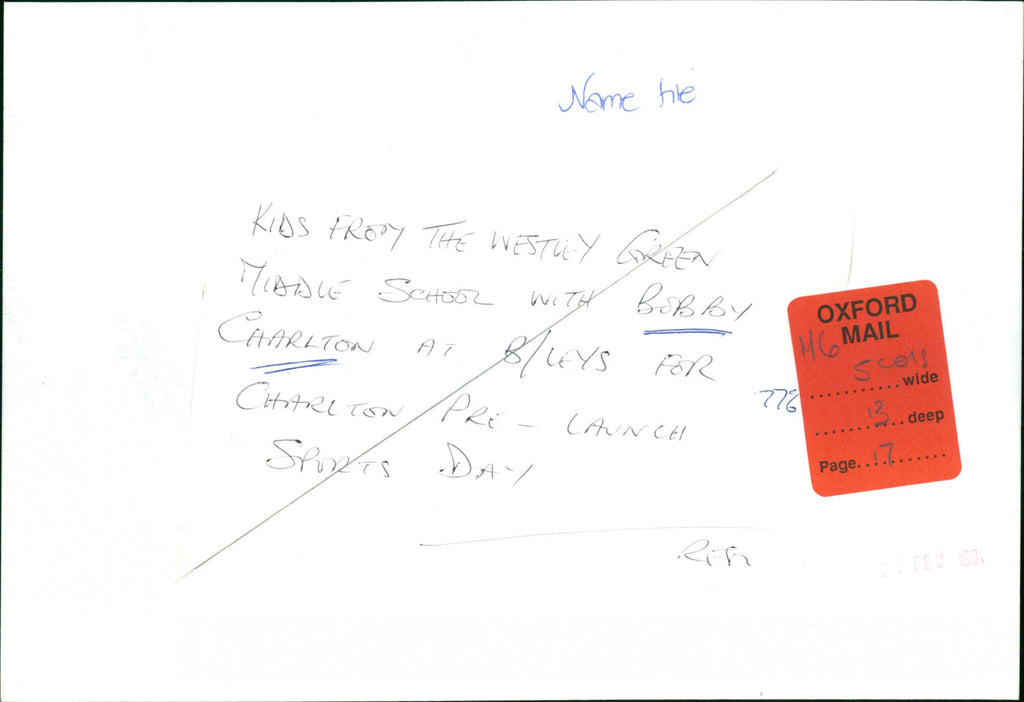 Name file
KIDS FROM THE WESTLEY GREEN
MIDDLE SCHOOL WITH BOBBY
CHARLTON AT B/LEYS FOR
CHARLTON PRE - LAUNCH
SPORTS DAY
OXFORD
MAIL
M6
5 cols
..........wide
13
..........deep
Page..17..........
776
FEB 199